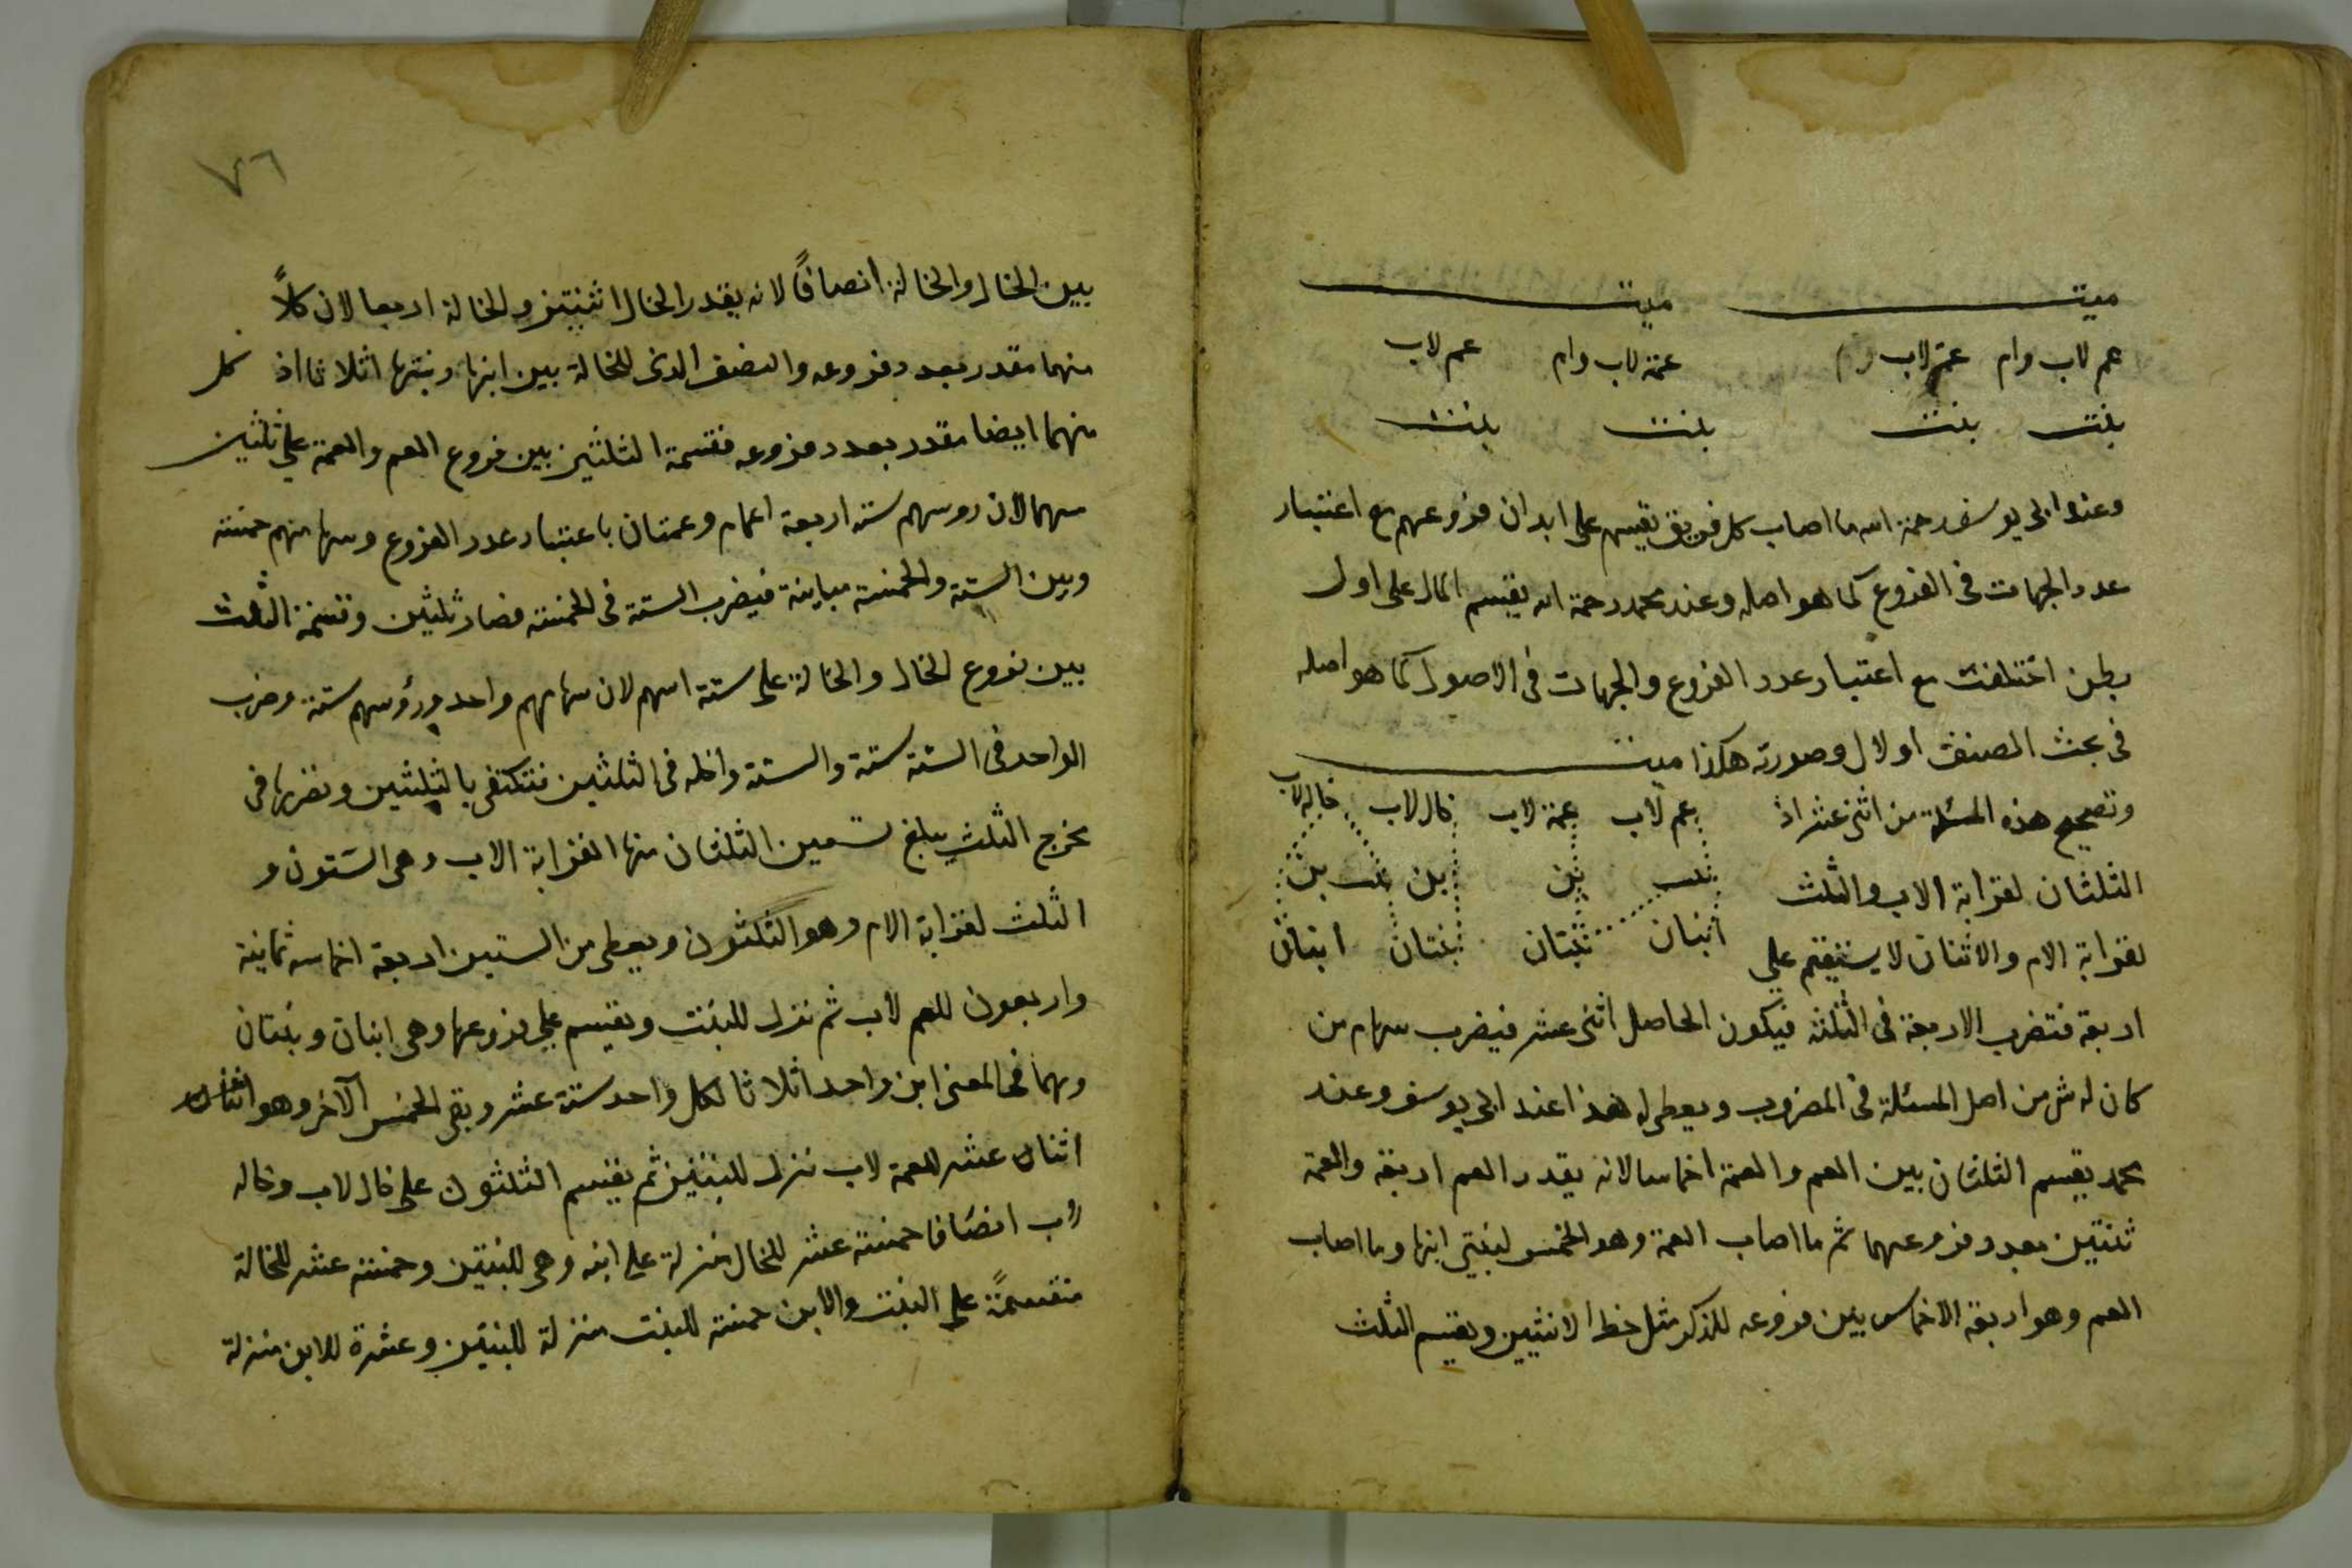 ميت ميت
عم لاب وام عمة لاب وام عمة لاب وام عم لاب
بنت بنت بنت بنت
وعند ابى يوسف رحمة الله ما اصاب كل فريق يقسم على ابدان فروعهم مع اعتبار
عدد الجهات فى الفروع كما هو اصله وعند محمد رحمة الله يقسم المال على اول
بطن اختلفت مع اعتبار عدد الفروع والجهات فى الاصول كما هو اصله
فى بحث المصنف اولا وصورته هكذا ميت
وتصحيح هذه المسئلة من اثنى عشر اذ عم لاب عمة لاب خال لاب خاله لاب
الثلثان لقرابة الاب والثلث بنت بن بن بنت بن
لقرابة الام والاثنان لا يستقيم على ابنان بنتان بنتان ابنتان
اربعة فتضرب الاربعة فى الثلثة فيكون الحاصل اثنى عشر فيضرب سهام من
كان له ش من اصل المسئلة فى المضروب ويعطى له هذا عند ابى يوسف وعند
محمد يقسم الثلثان بين العم والعمة اخماسا لانه يقدر العم اربعة والعمة
ثنتين بعدد فروعهما ثم ما اصاب العمة وهو الخمس لبنتى ابنها وما اصاب
العم وهو اربعة الاخماس بين فروعه للذكر مثل حظ الانثيين ويقسم الثلث
٧٦
بين الخال والخالة انصافاً لانه يقدر الخال اثنتين والخالة اربعا لان كلاً
منهما مقدر بعدد فروعه والنصف الذى للخالة بين ابنها وبنتها اثلاثا اذ كل
منهما ايضا مقدر بعدد فروعه فقسمة الثلثين بين فروع العم والعمة على ثلثين
سهما لان روسهم ستة اربعة اعمام وعمتان باعتبار عدد الفروع وسهامهم خمسة
وبين الستة والخمسة مباينة فيضرب الستة فى الخمسة فصار ثلثين وقسمة الثلث
بين فروع الخال والخالة على ستة اسهم لان سهامهم واحد ورؤسهم ستة وضرب
الواحد فى الستة ستة والستة داخله فى الثلثين فتكتفى بالثلثين وتضربها فى
مخرج الثلث يبلغ تسعين الثلثان منها لقرابة الاب وهى الستون و
الثلث لقرابة الام وهو الثلثون ويعطى من الستين اربعة اخماسه ثمانية
واربعون للعم لاب ثم تنزل للبنت ويقسم على فروعها وهى ابنان وبنتان
وهما فى المعنى ابن واحد اثلاثا لكل واحد ستة عشر وبقى الخمس الآخر وهو اثنان
اثنان عشر للعمة لاب تنزل للبنتين ثم يقسم الثلثون على خال لاب وخاله
لاب انصافا خمسة عشر للخال منزلة على ابنه وهى للبنتين وخمسة عشر للخالة
منقسمةً على البنت والابن خمسة للبنت منزلة للبنتين وعشرة للابن منزلة